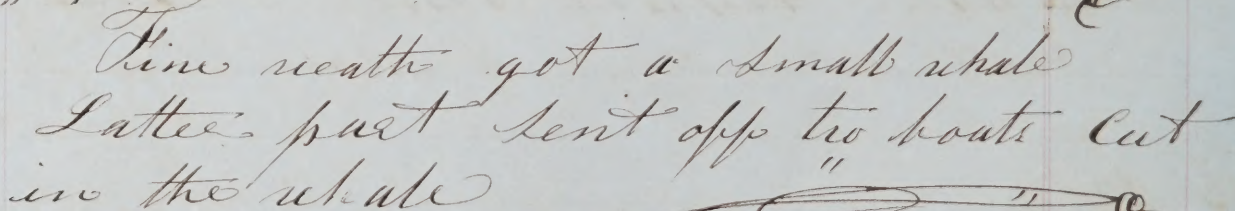 Fine weath got a small whale
Latter part sent off two boats cut
in the whale